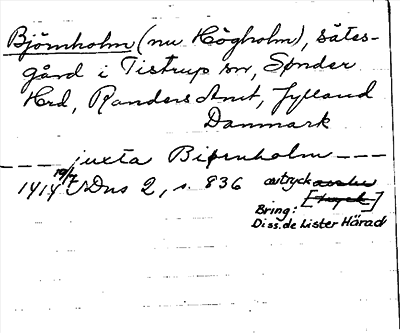 Björnholm (nu Högholm), sätes-
gård i Tistrup sn, Sønder
Hrd, Randers Amt, Jylland
Danmark
--- juxta Biørnholm ---
1414 19/7 SDns 2, s. 836 avtryck
Bring:
Diss. de Lister Härad